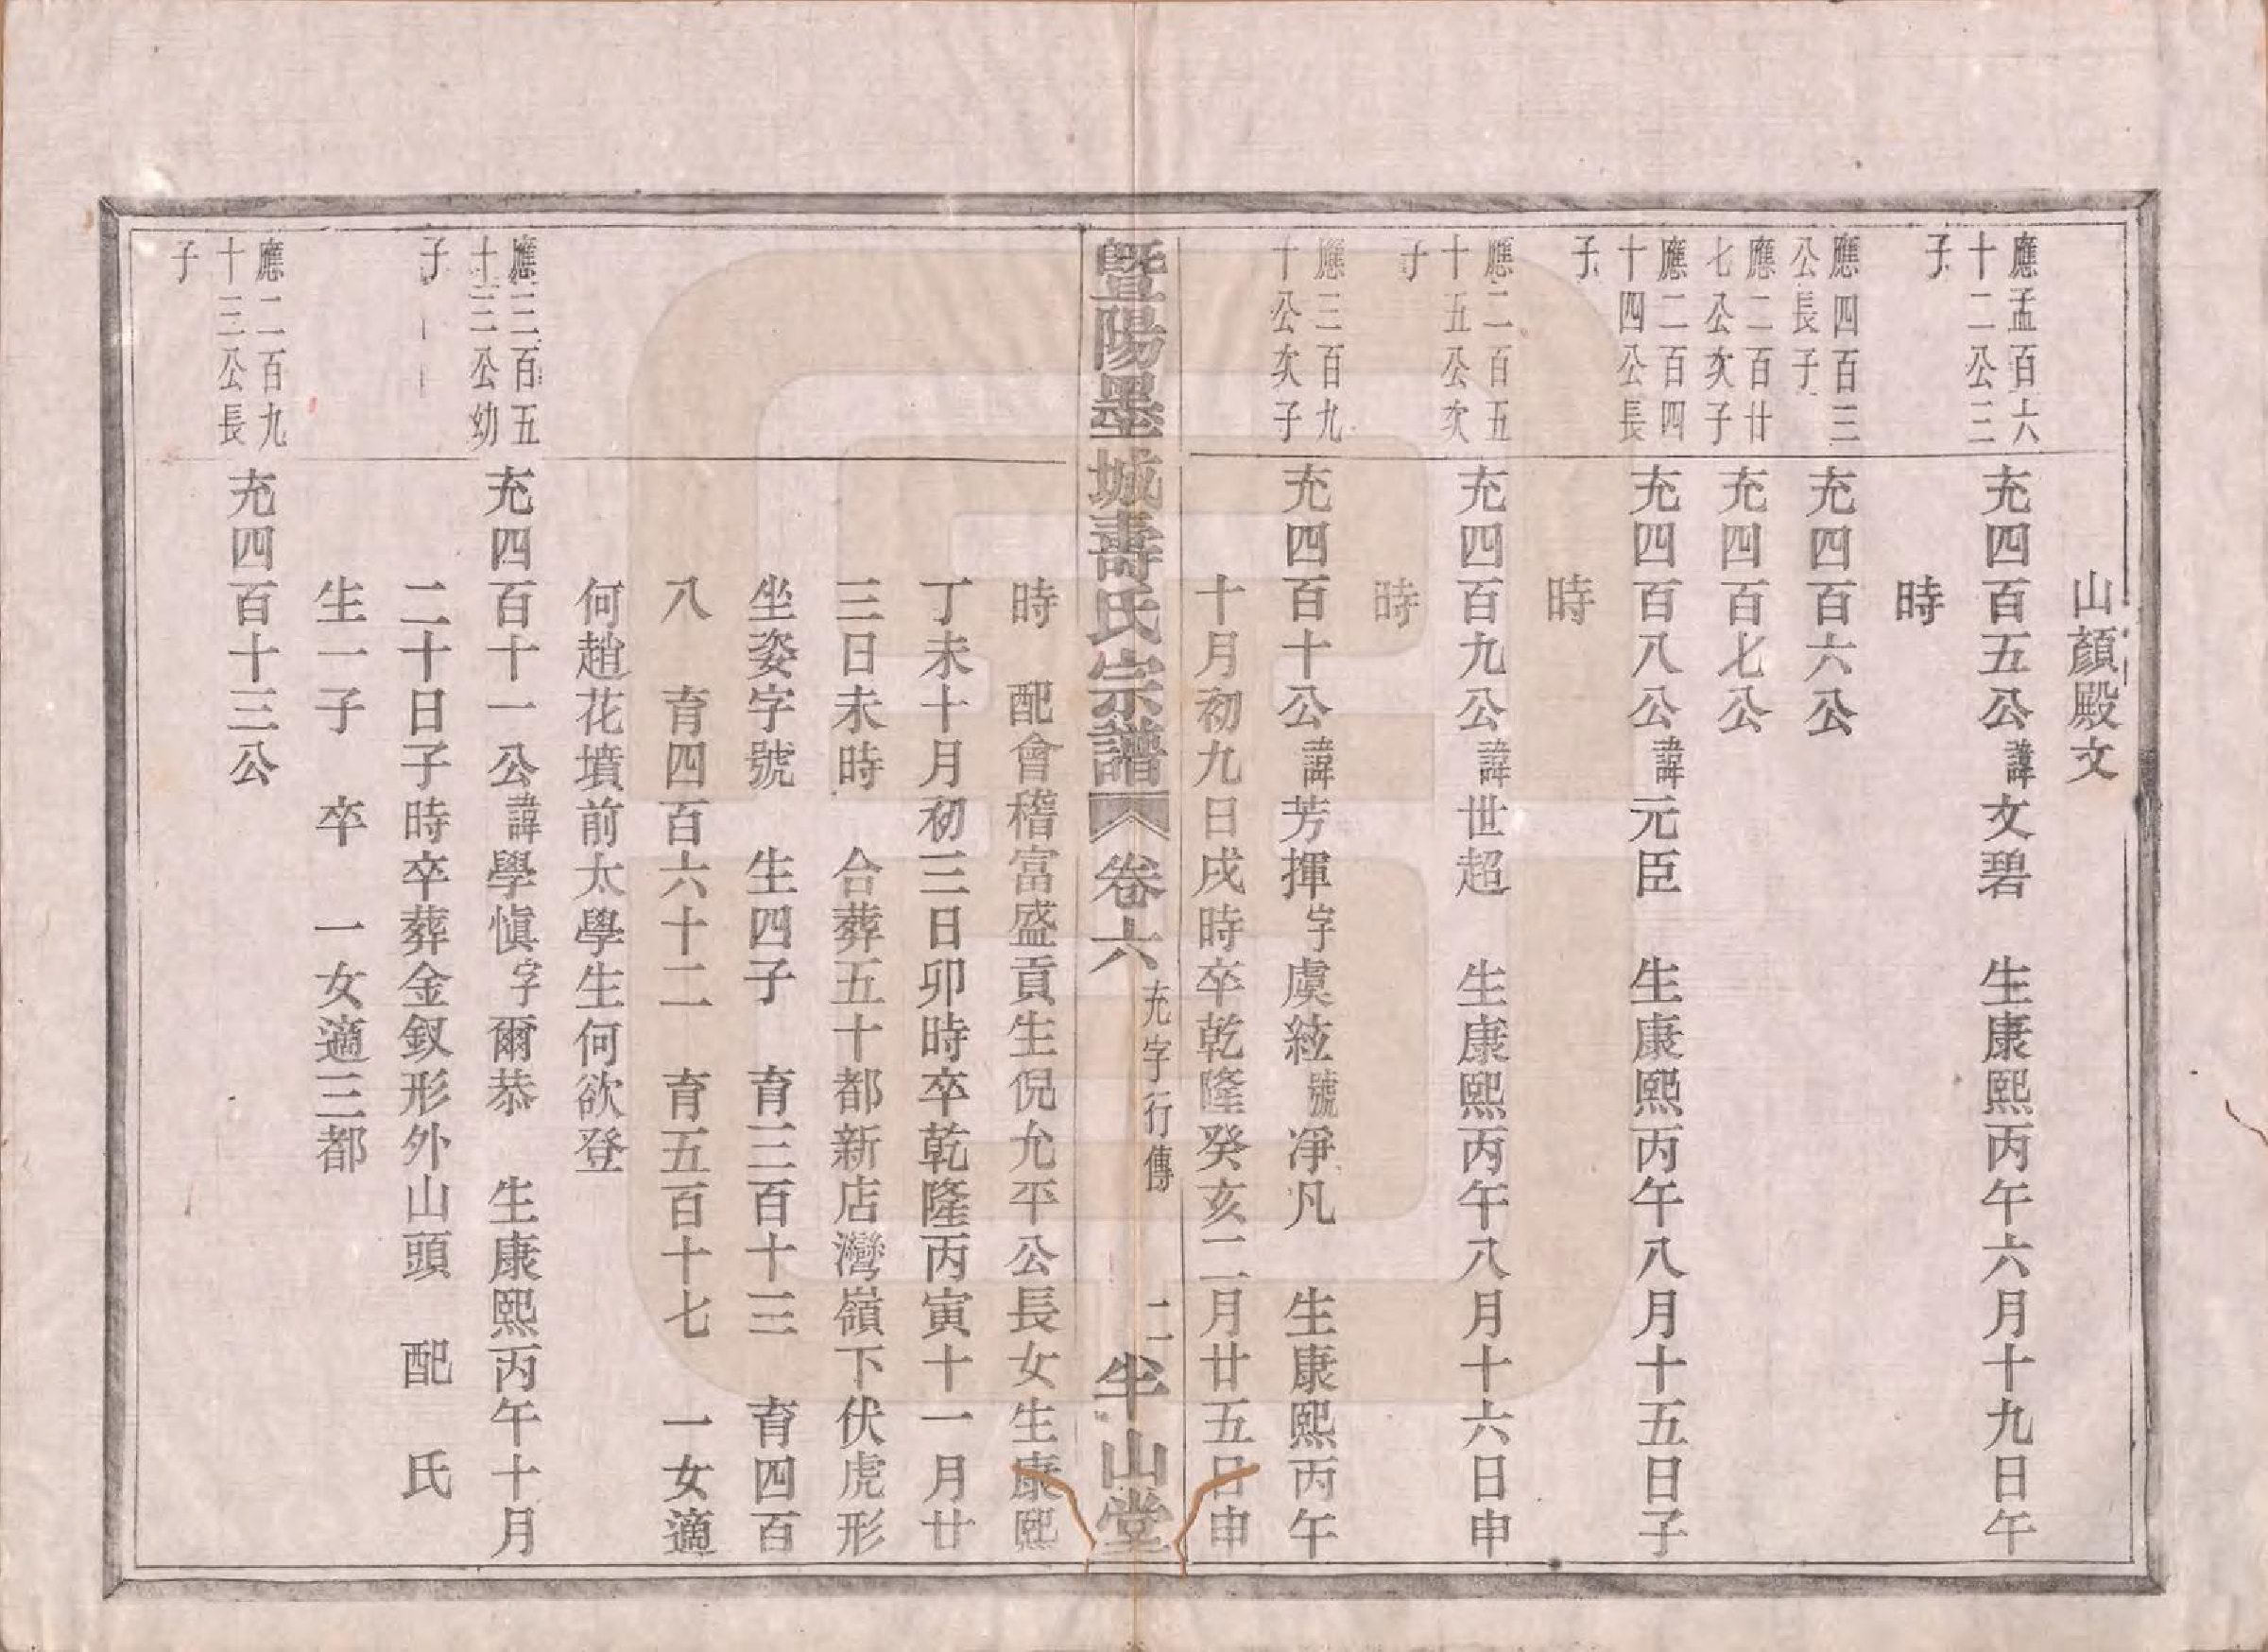 山顏殿文
應孟百六
十二公三
子
充四百五公諱文碧　生康熙丙午六月十九日午
時
應四百三
公長子
充四百六公
應二百廿
七公次子
充四百七公
應二百四
十四公長
子
充四百八公諱元臣　生康熙丙午八月十五日子
時
應二百五
十五公次
子
充四百九公諱世超　生康熙丙午八月十六日申
時
應三百九
十公次子
充四百十公諱芳揮字虞絃號淨凡　生康熙丙午
十月初九日戌時卒乾隆癸亥二月廿五日申
暨陽墨城壽氏宗譜　卷六　充字行傳　二　半山堂
時　配會稽富盛貢生倪允平公長女生康熙
丁未十月初三日卯時卒乾隆丙寅十一月廿
三日未時　合葬五十都新店灣嶺下伏虎形
坐姿字號　生四子　育三百十三　育四百
八　育四百六十二　育五百十七　一女適
何趙花墳前太學生何欲登
應三百五
十三公幼
子
充四百十一公諱學愼字爾恭　生康熙丙午十月
二十日子時卒葬金釵形外山頭　配　氏
生一子　卒　一女適三都
應二百九
十三公長
子
充四百十三公